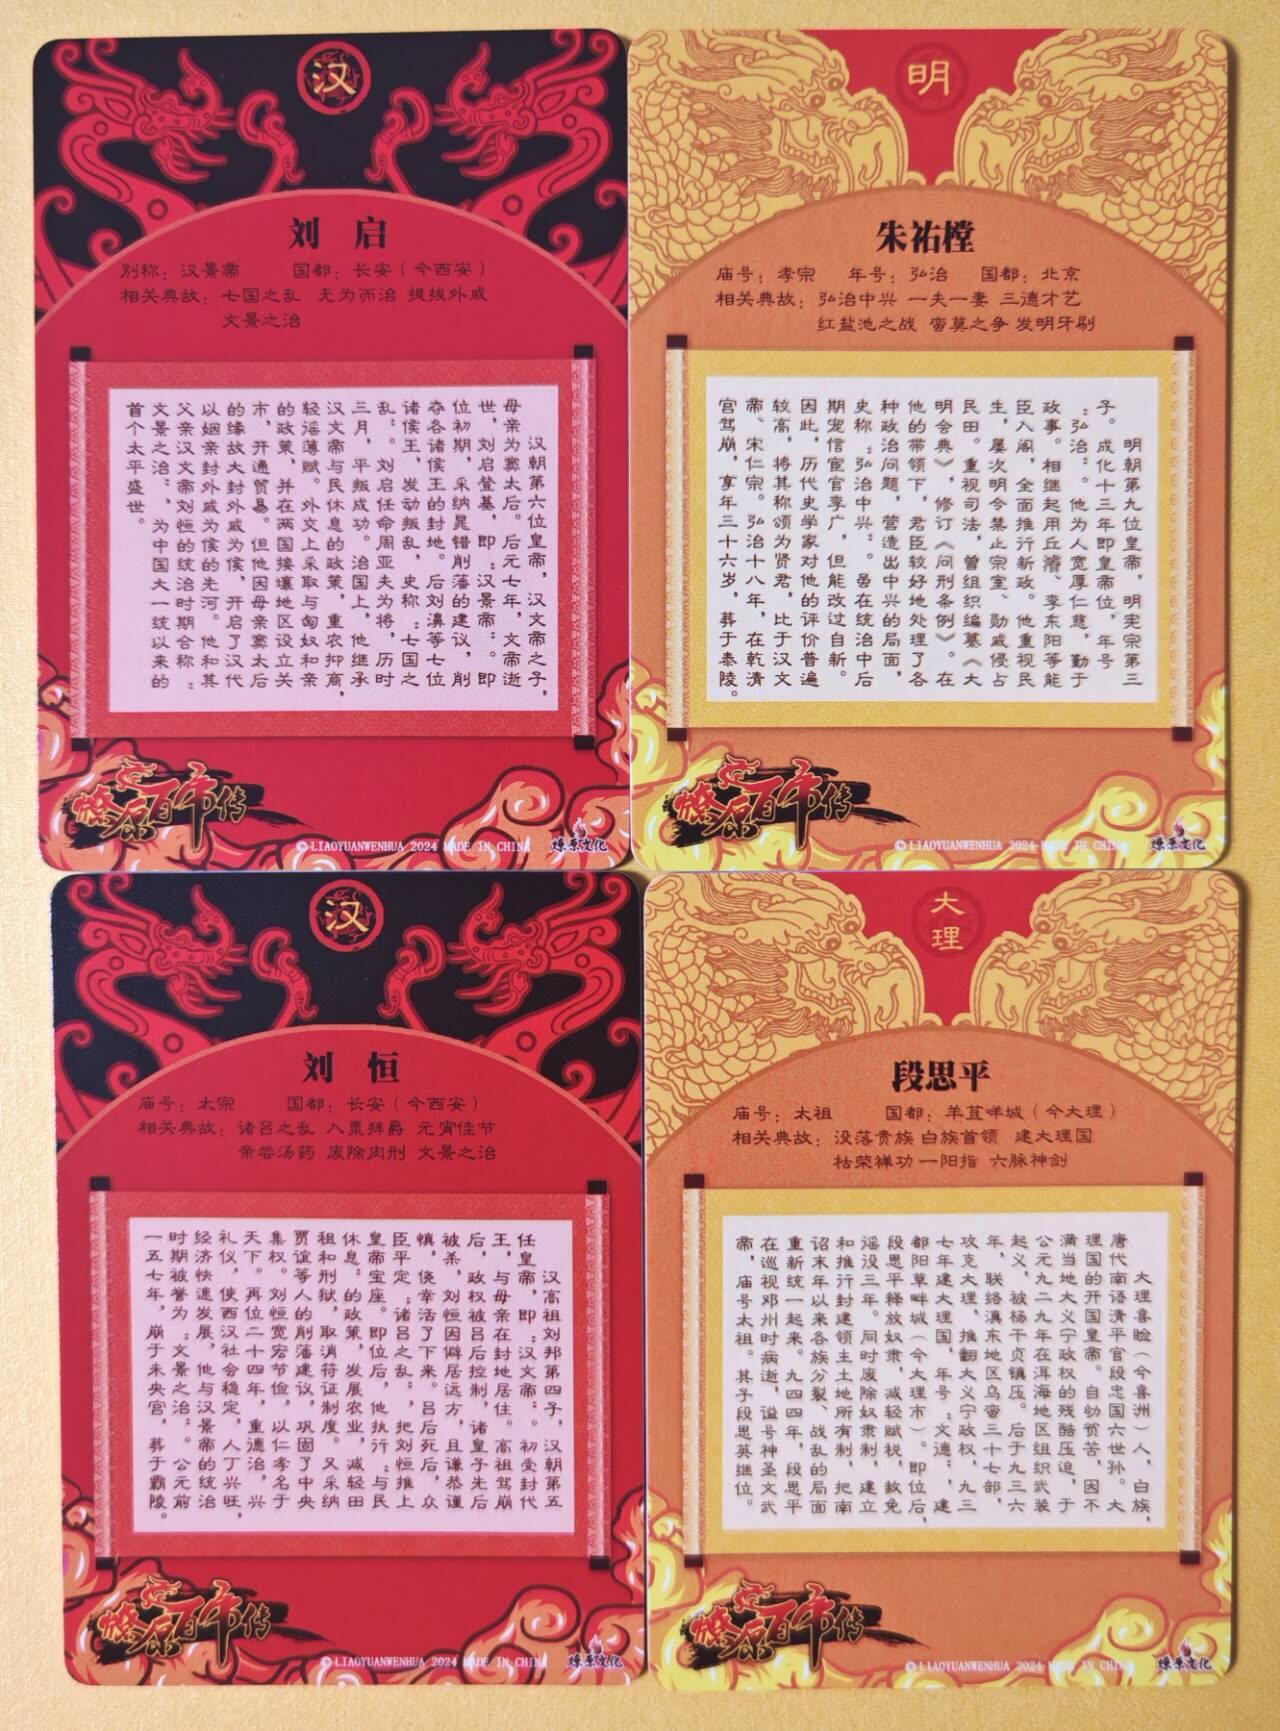 汉
刘 启
别称：汉景帝 国都：长安（今西安）
相关典故：七国之乱 无为而治 提拔外戚
文景之治
汉朝第六位皇帝，汉文帝之子，
母亲为窦太后。后元七年，文帝逝
世，刘启登基，即“汉景帝”。即
位初期，采纳晁错削藩的建议，削
夺各诸侯王的封地。后刘濞等七位
诸侯王，发动叛乱，史称“七国之
乱”。刘启任命周亚夫为将，历时
三月，平叛成功。治国上，他继承
汉文帝与民休息的政策，重农抑商，
轻徭薄赋。外交上采取与匈奴和亲
的政策，并在两国接壤地区设立关
市，开通贸易。但他因母亲窦太后
的缘故大封外戚为侯，开启了汉代
以姻亲封外戚为侯的先河。他和其
父亲汉文帝刘恒的统治时期合称“
文景之治”，为中国大一统以来的
首个太平盛世。
燎原百帝传
©LIAOYUANWENHUA 2024 MADE IN CHINA
燎原文化
明
朱祐樘
庙号：孝宗 年号：弘治 国都：北京
相关典故：弘治中兴 一夫一妻 三德才艺
红盐池之战 蛮莫之争 发明牙刷
明朝第九位皇帝，明宪宗第三
子。成化十三年即皇帝位，年号
“弘治”。他为人宽厚仁慈，勤于
政事。相继起用丘濬、李东阳等能
臣入阁，全面推行新政。他重视民
生，屡次明令禁止宗室、勋戚侵占
民田。重视司法，曾组织编纂《大
明会典》，修订《问刑条例》。在
他的带领下，君臣较好地处理了各
种政治问题，营造出中兴的局面，
史称“弘治中兴”。虽在统治中后
期宠信宦官李广，但能改过自新。
因此，历代史学家对他的评价普遍
较高，将其称颂为贤君，比于汉文
帝、宋仁宗。弘治十八年，在乾清
宫驾崩，享年三十六岁，葬于泰陵。
燎原百帝传
©LIAOYUANWENHUA 2024 MADE IN CHINA
燎原文化
汉
刘 恒
庙号：太宗 国都：长安（今西安）
相关典故：诸吕之乱 入粟拜爵 元宵佳节
亲尝汤药 废除肉刑 文景之治
汉高祖刘邦第四子，汉朝第五
任皇帝，即“汉文帝”。初受封代
王，与母亲在封地居住。高祖驾崩
后，政权被吕后控制，诸皇子先后
被杀，刘恒因僻居远方，且谦恭谨
慎，侥幸活了下来。吕后死后，众
臣平定“诸吕之乱”，把刘恒推上
皇帝宝座。即位后，他执行“与民
休息”的政策，发展农业，减轻田
租和刑狱，取消符证制度。又采纳
贾谊等人的削藩建议，巩固了中央
集权。刘恒宽宏节俭，以仁孝名于
天下。再位二十四年，重德治，兴
礼仪，使西汉社会稳定，人丁兴旺，
经济快速发展，他与汉景帝的统治
时期被誉为“文景之治”。公元前
一五七年，崩于未央宫，葬于霸陵。
燎原百帝传
©LIAOYUANWENHUA 2024 MADE IN CHINA
燎原文化
大
理
段思平
庙号：太祖 国都：羊苴咩城（今大理）
相关典故：没落贵族 白族首领 建大理国
枯荣禅功 一阳指 六脉神剑
大理喜睑（今喜洲）人，白族，
唐代南诏清平官段忠国六世孙。大
理国的开国皇帝。自幼贫苦，因不
满当地大义宁政权的残酷压迫，于
公元九二九年在洱海地区组织武装
起义，被杨干贞镇压。后于九三六
年，联络滇东地区乌蛮三十七部，
攻克大理，推翻大义宁政权，九三
七年建大理国，年号“文德”，建
都阳草哶城（今大理市）。即位后，
段思平释放奴隶，减轻赋税，赦免
谣役三年。同时废除奴隶制，建立
和推行封建领主土地所有制，把南
诏末年以来各族分裂、战乱的局面
重新统一起来。九四四年，段思平
在巡视邓州时病逝，谥号神圣文武
帝，庙号太祖。其子段思英继位。
燎原百帝传
©LIAOYUANWENHUA 2024 MADE IN CHINA
燎原文化